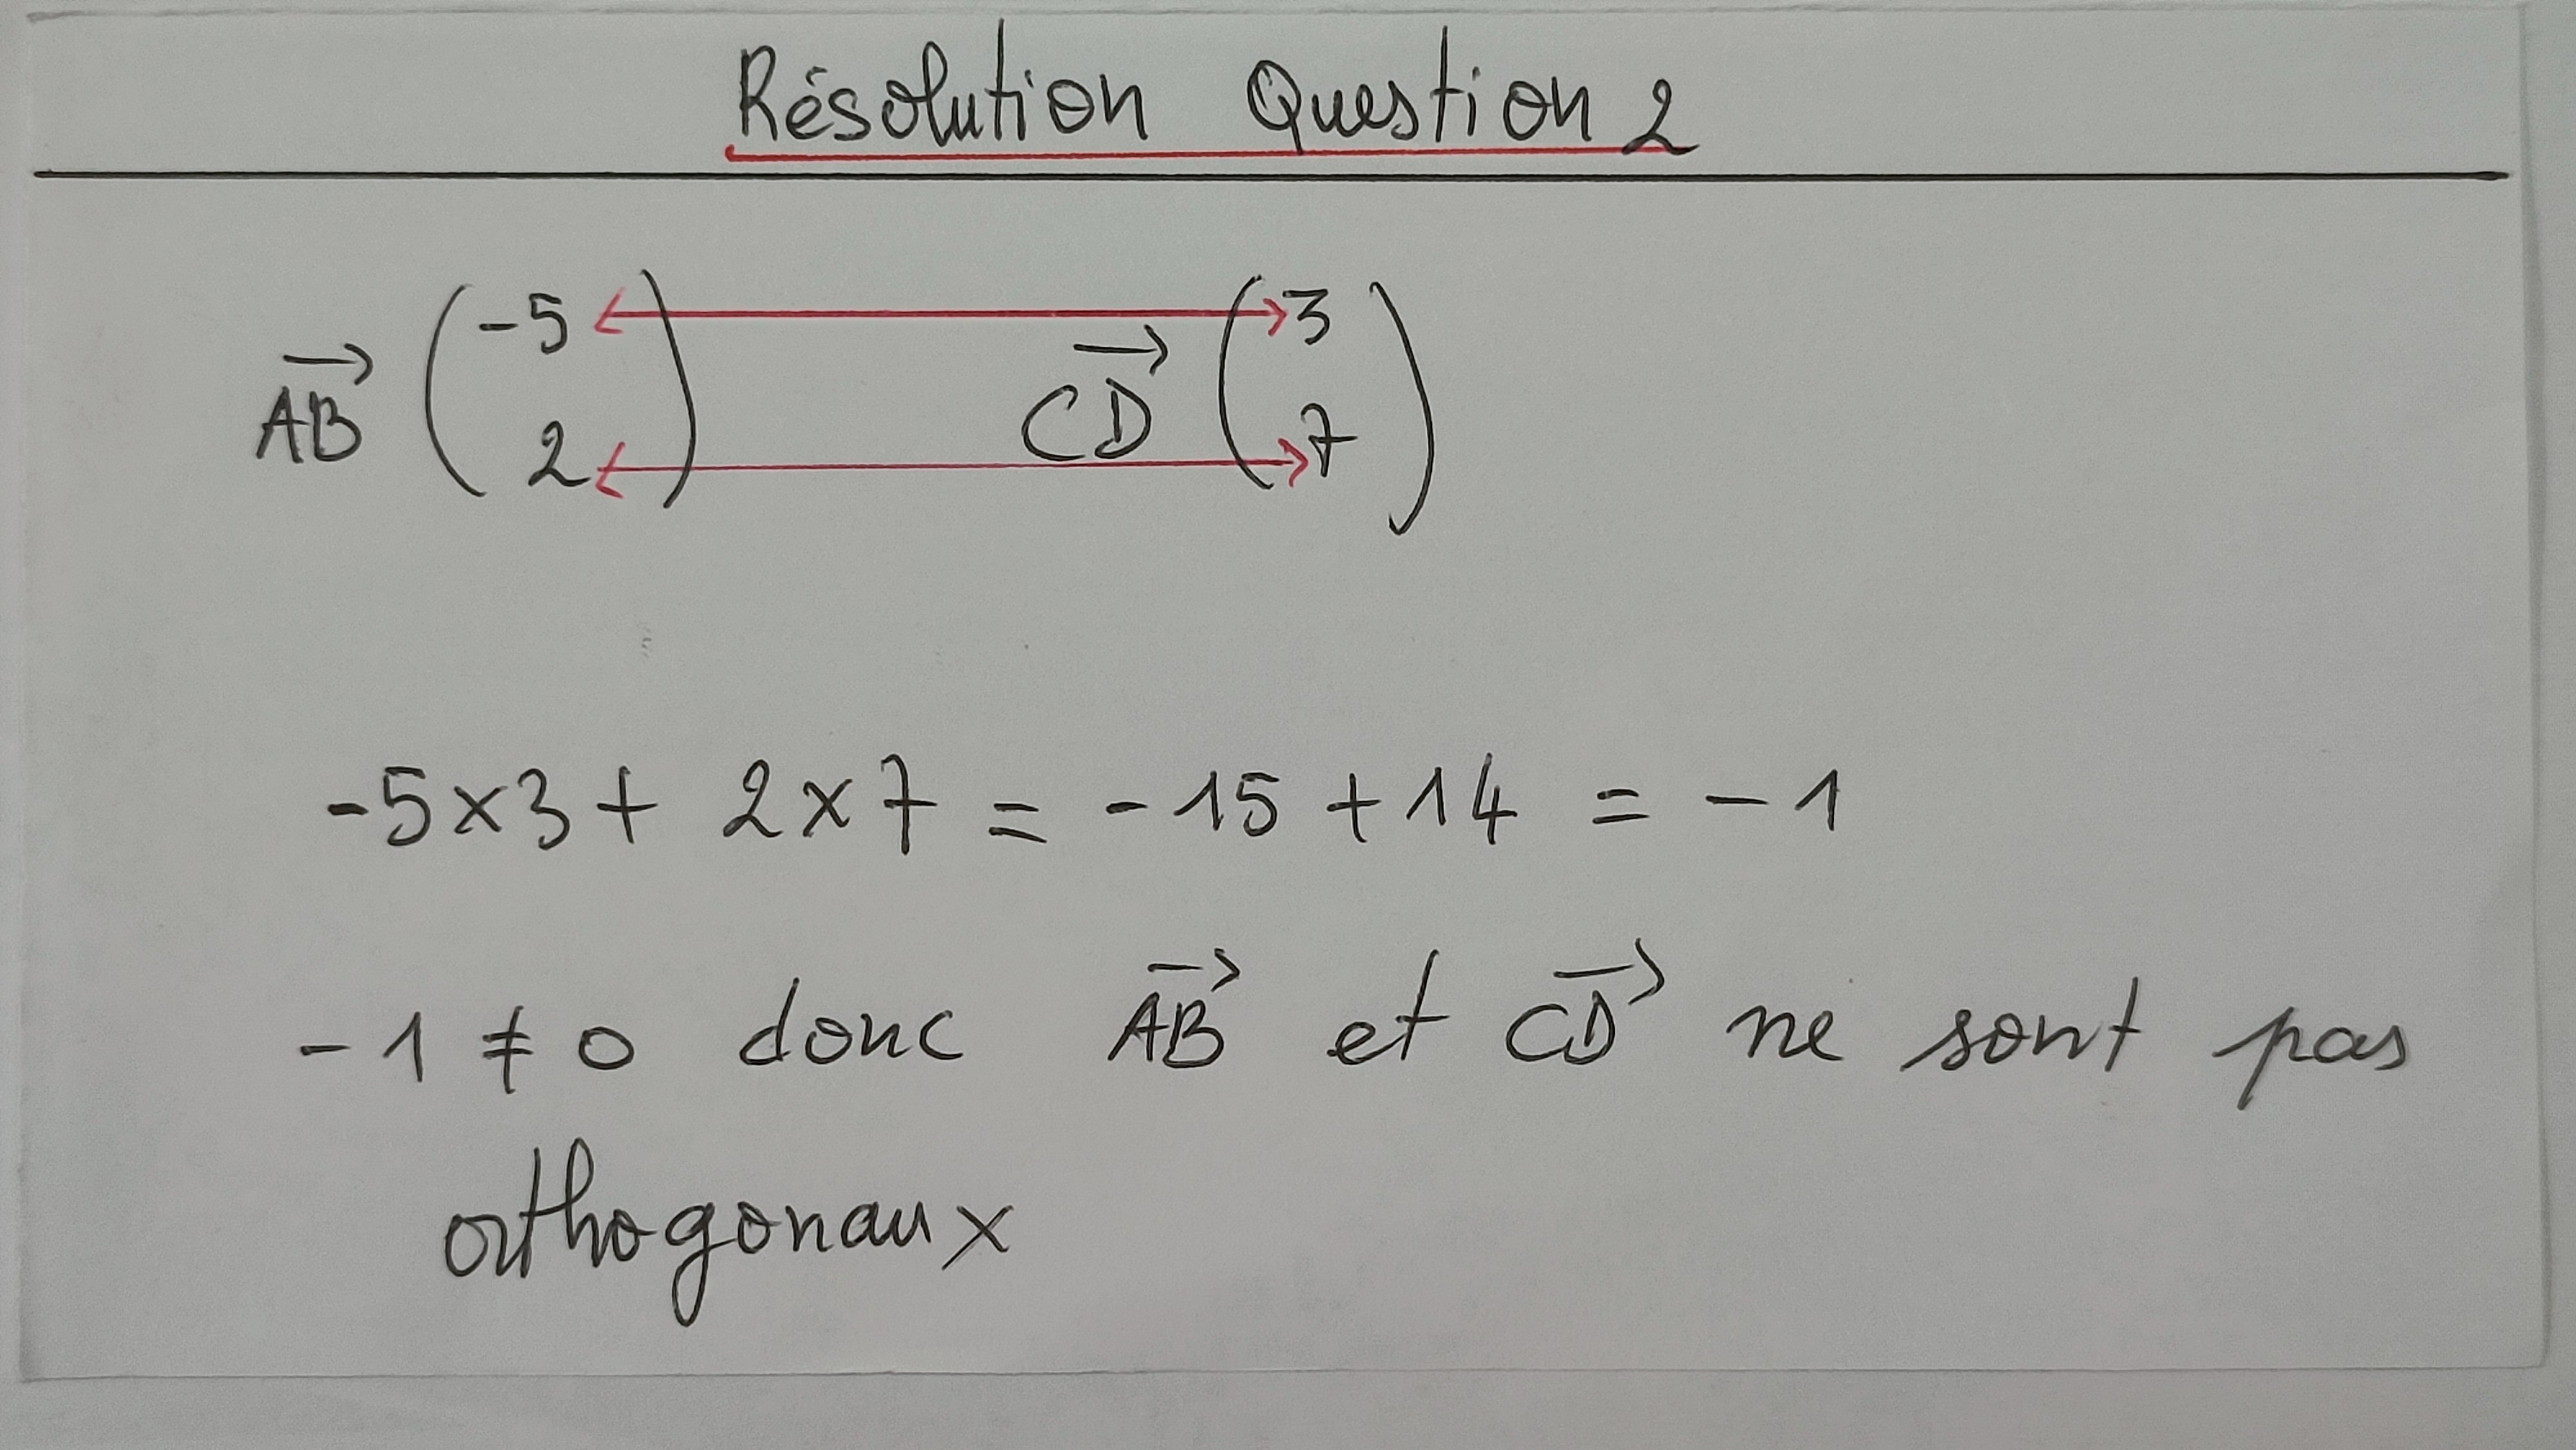 Résolution Question 2
AB→ (-5 2) CD→ (3 7)
-5×3+ 2×7 = -15+14 = -1
-1 ≠ 0 donc AB→ et CD→ ne sont pas
orthogonaux